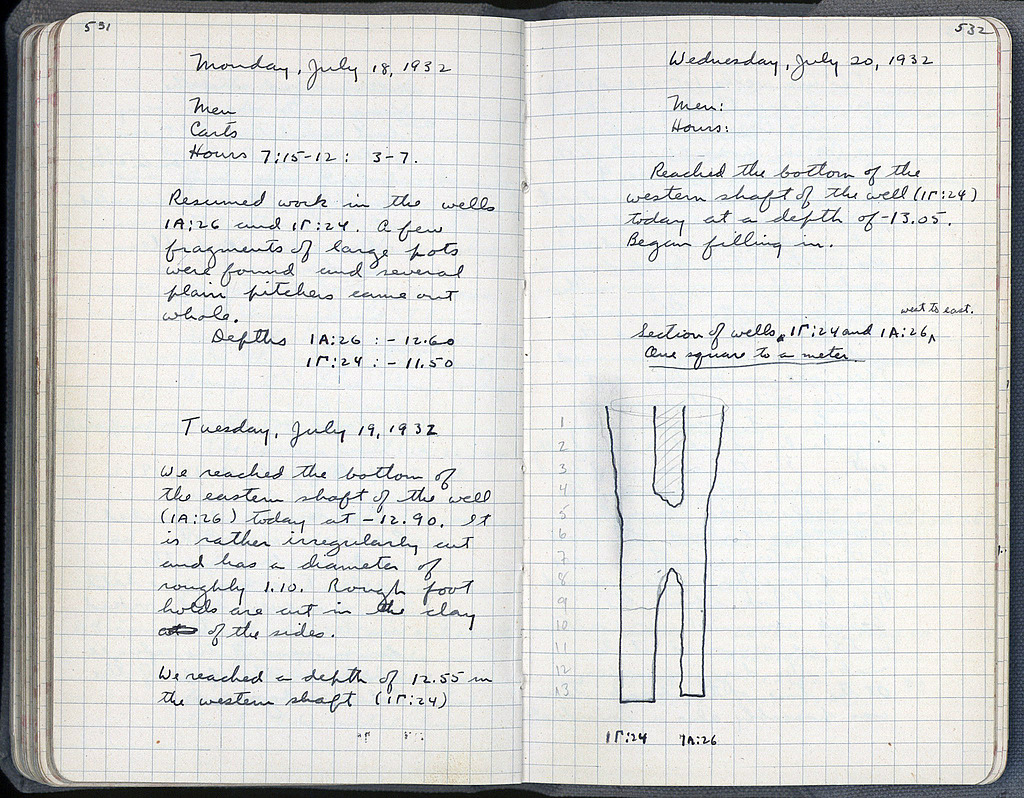 531
Monday, July 18, 1932
Men
Carts
Hours 7:15-12 : 3-7.
Resumed work in the wells
1A:26 and 1Γ:24. A few
fragments of large pots
were found and several
plain pitchers came out
whole.
Depths 1A:26 : -12.60
1Γ:24 : -11.50
Tuesday, July 19, 1932
We reached the bottom of
the eastern shaft of the well
(1A:26) today at -12.90. It
is rather irregularly cut
and has a diameter of
roughly 1.10. Rough foot
holds are cut in the clay
of the sides.
We reached a depth of 12.55 in
the western shaft (1Γ:24)
532
Wednesday, July 20, 1932
Men:
Hours:
Reached the bottom of the
western shaft of the well (1Γ:24)
today at a depth of -13.05.
Began filling in.
west to east.
Section of wells, 1Γ:24 and 1A:26^
One square to a meter
1
2
3
4
5
6
7
8
9
10
11
12
13
1Γ:24 1A:26